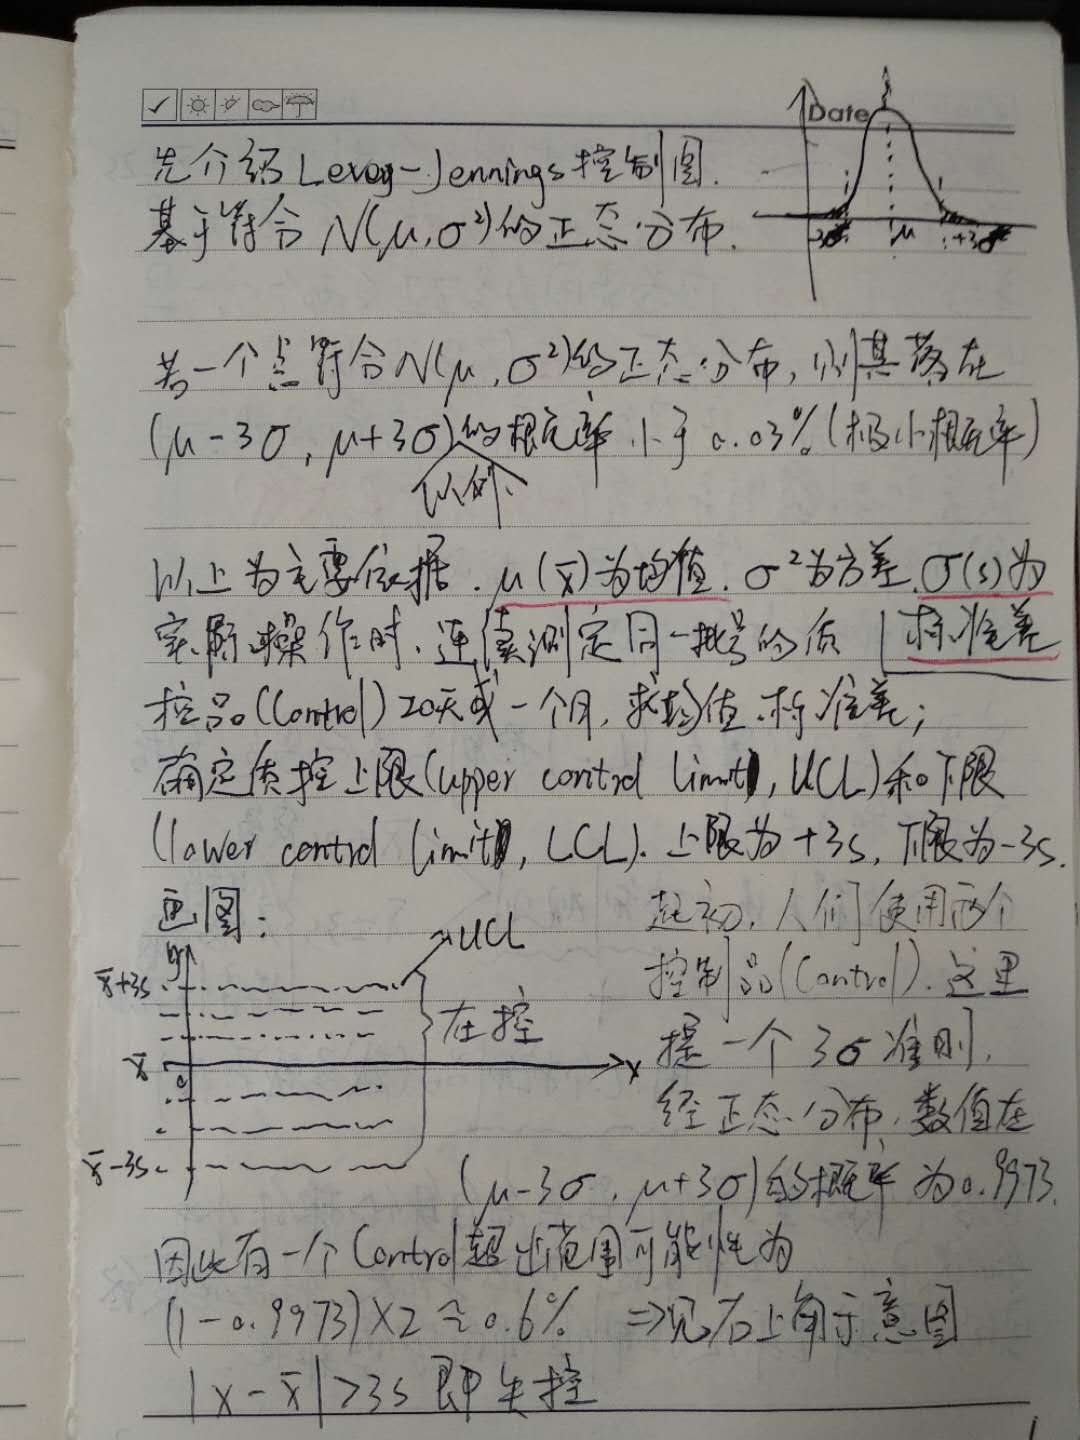 Date
先介绍Levey-Jennings控制图.
基于符合N(μ,σ²)的正态分布.
-3σ μ +3σ
若一个点符合N(μ,σ²)的正态分布,则其落在
(μ-3σ,μ+3σ)的概率小于0.03%(极小概率)
以外
以上为主要依据.μ(x̄)为均值.σ²为方差.σ(s)为
标准差
实际操作时,连续测定同一批号的质
控品(Control)20天或一个月,求均值.标准差;
确定质控上限(upper control limit,UCL)和下限
(lower control limit,LCL).上限为+3s,下限为-3s.
画图:
y
UCL
x̄+3s
在控
x̄
0
x
x̄-3s
起初,人们使用两个
控制品(Control).这里
提一个3σ准则,
经正态分布,数值在
(μ-3σ,μ+3σ)的概率为0.9973.
因此有一个Control超出范围可能性为
(1-0.9973)×2≈0.6% ⇒见右上角示意图
|x-x̄|>3s即失控
1